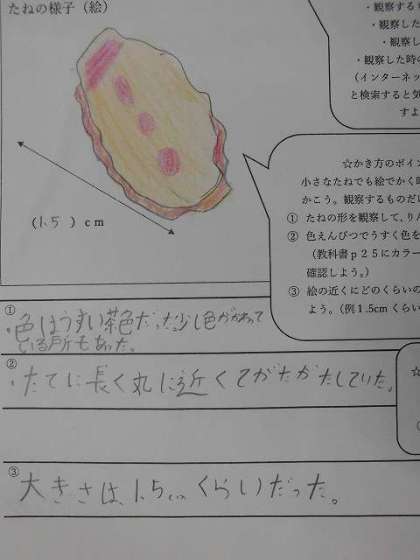 たねの様子（絵）
（1.5）cm
・観察する
・観察した
・観察し
・観察した時の
（インターネッ
と検索すると気
すよ
☆かき方のポイン
小さなたねでも絵でかく時
かこう。観察するものだい
① たねの形を観察して、りん
② 色えんぴつでうすく色を
（教科書ｐ２５にカラー
確認しよう。）
③ 絵の近くにどのくらいの
よう。（例1.5cmくらい
①
・色はうすい茶色だった少し色がかわって
いる所もあった。
②
・たてに長く丸に近くてがたがたしていた。
③
大きさは、1.5cmくらいだった。